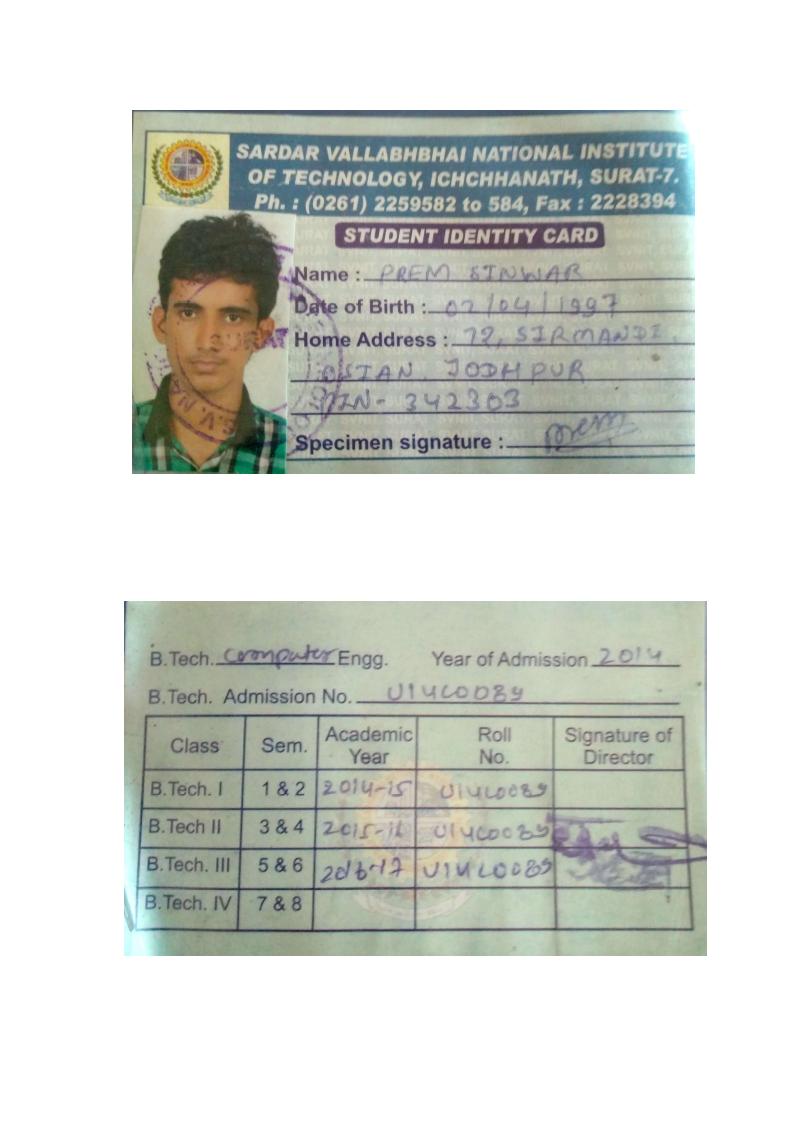 SARDAR VALLABHBHAI NATIONAL INSTITUTE
OF TECHNOLOGY, ICHCHHANATH, SURAT-7.
Ph. : (0261) 2259582 to 584, Fax : 2228394
STUDENT IDENTITY CARD
Name : PREM SINWAR
Date of Birth : 02/04/1997
Home Address : 72, SIRMANDI,
OSIAN, JODHPUR
PIN- 342303
Specimen signature : Prem
SURAT
S.V. NA
B.Tech. Computer Engg. Year of Admission 2014
B.Tech. Admission No. U14CO089
Class Sem. Academic Year Roll No. Signature of Director
B.Tech. I 1 & 2 2014-15 U14CO089
B.Tech II 3 & 4 2015-16 U14CO089
B.Tech. III 5 & 6 2016-17 U14CO089
B.Tech. IV 7 & 8